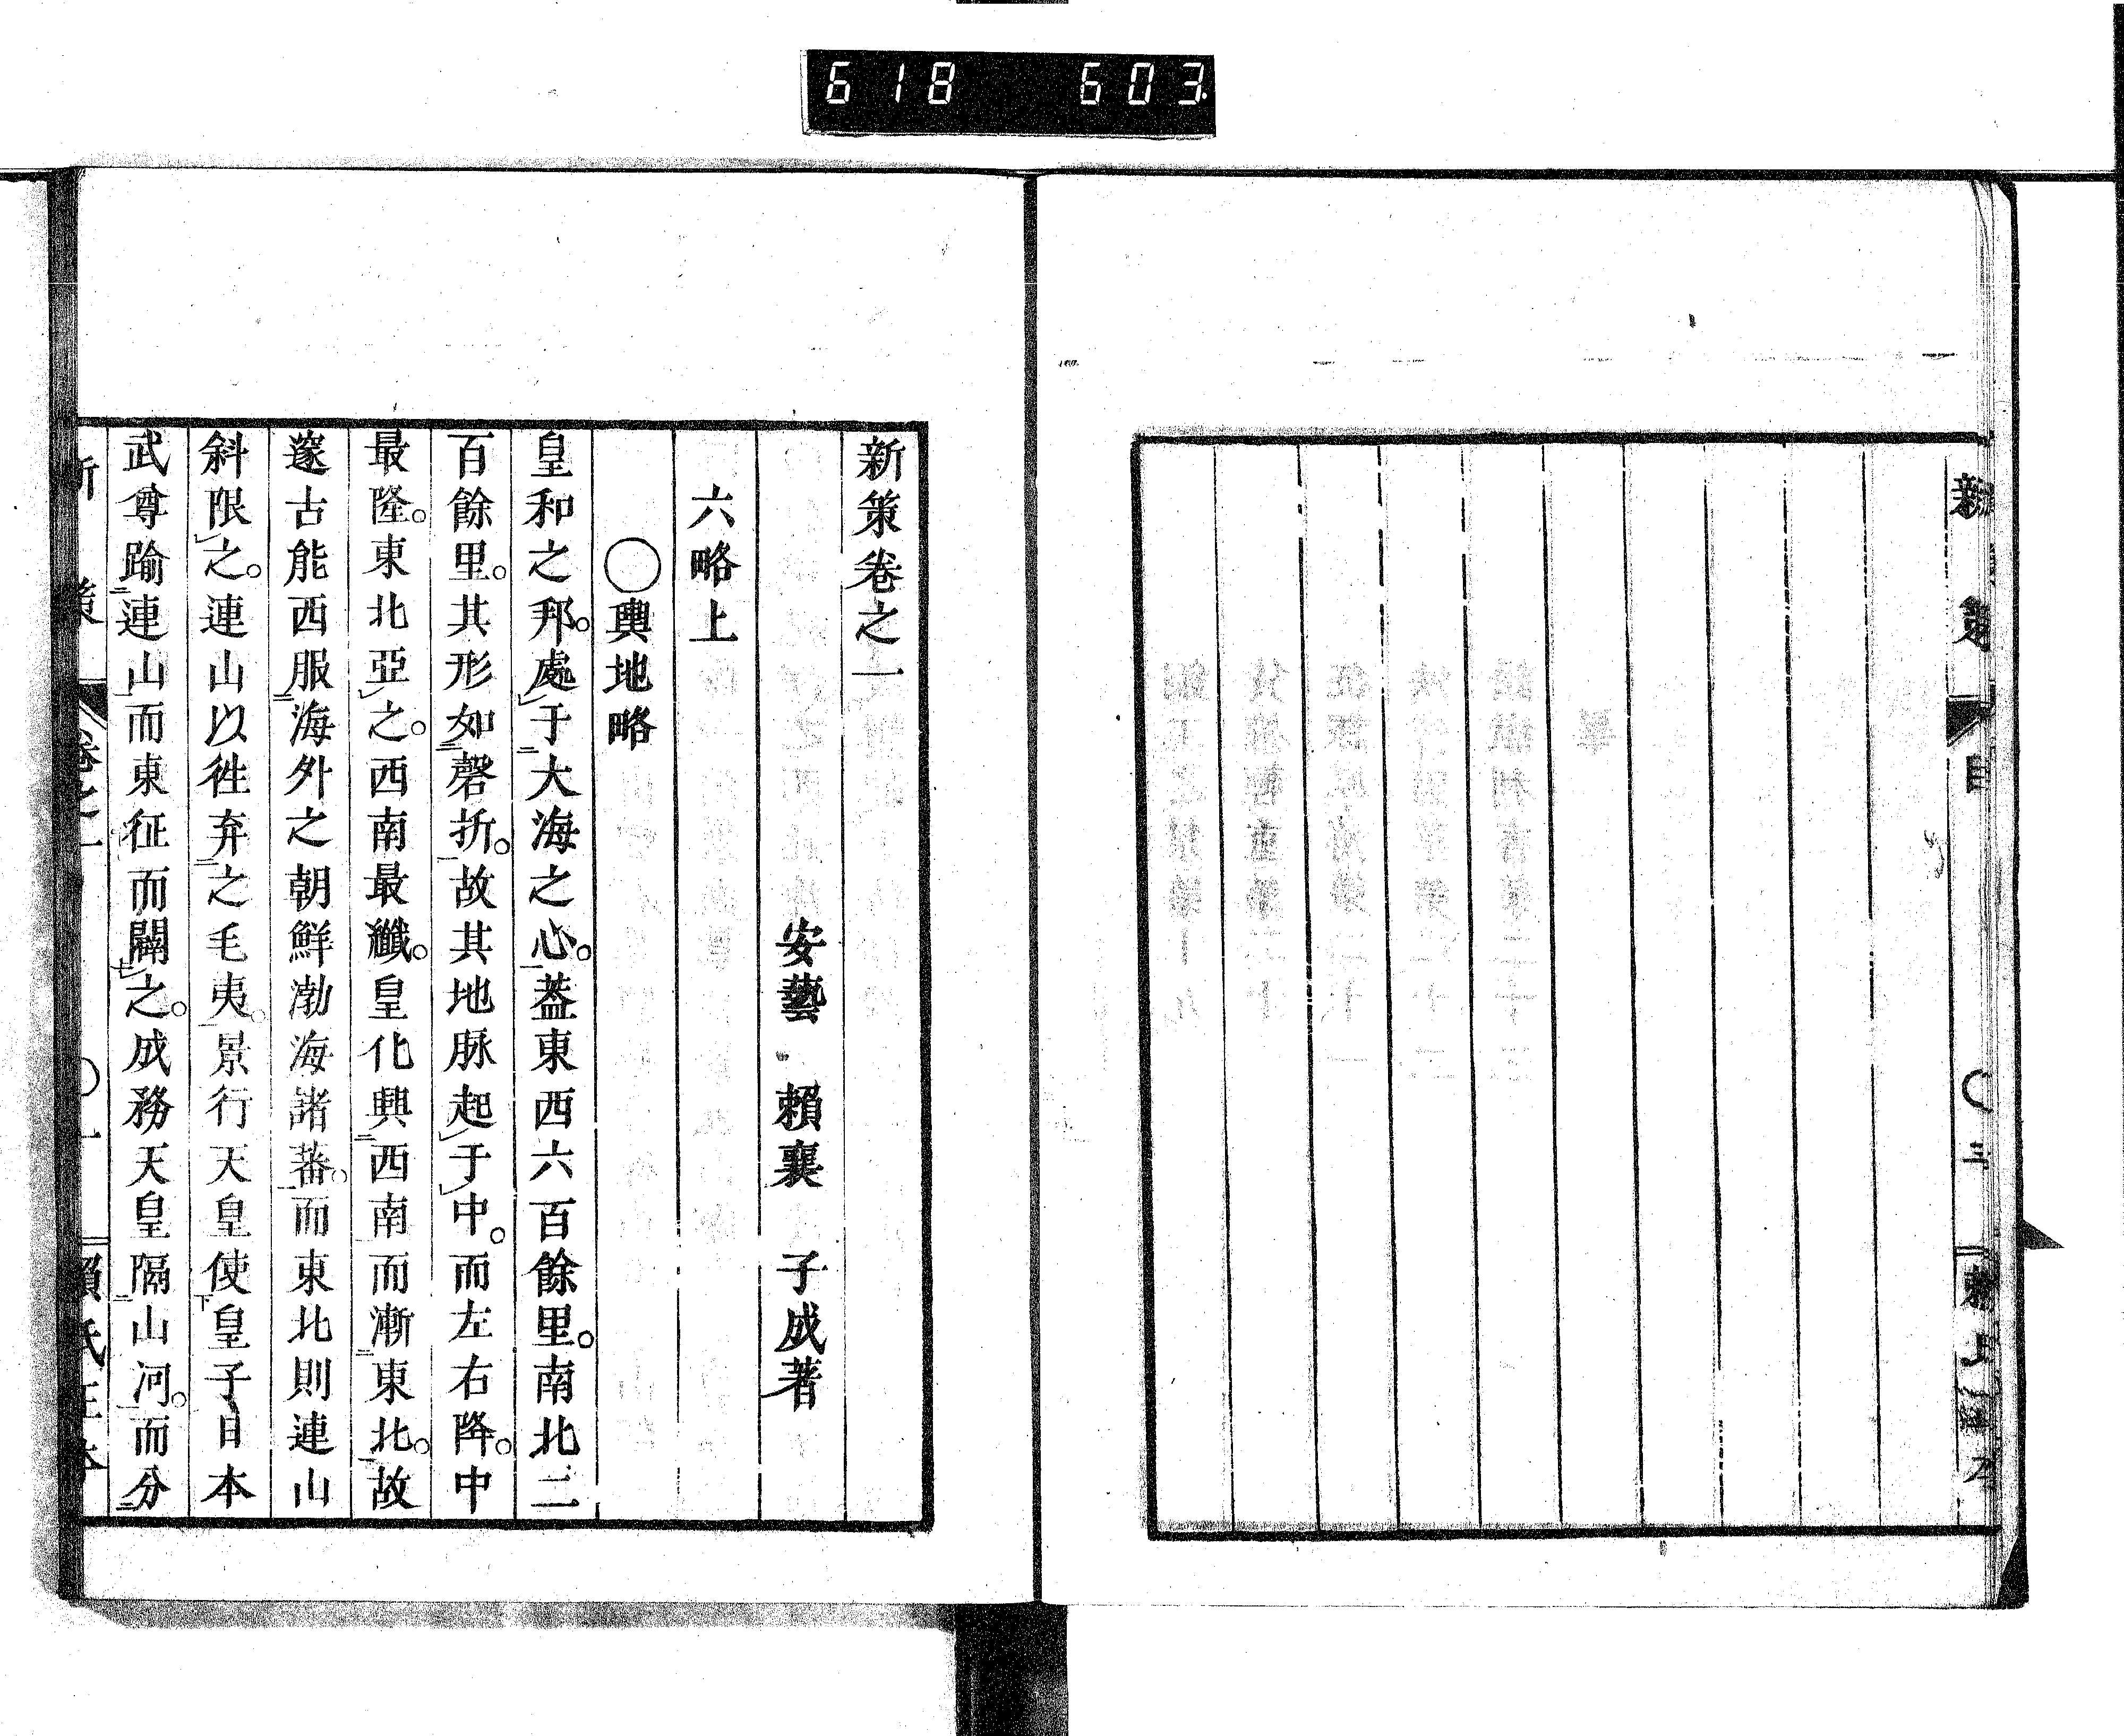 618 603
新策 目 ○三
新策卷之一
安藝 賴襄 子成著
六略上
○輿地略
皇和之邦。處于大海之心。蓋東西六百餘里。南北二
百餘里。其形如磬折。故其地脉起于中。而左右降。中
最隆。東北亞之。西南最纖。皇化興西南而漸東北。故
邃古能西服海外之朝鮮渤海諸蕃。而東北則連山
斜限之。連山以徃弃之毛夷。景行天皇使皇子日本
武尊踰連山而東征而闢之。成務天皇隔山河。而分
新策 卷之一 ○一 賴氏正本